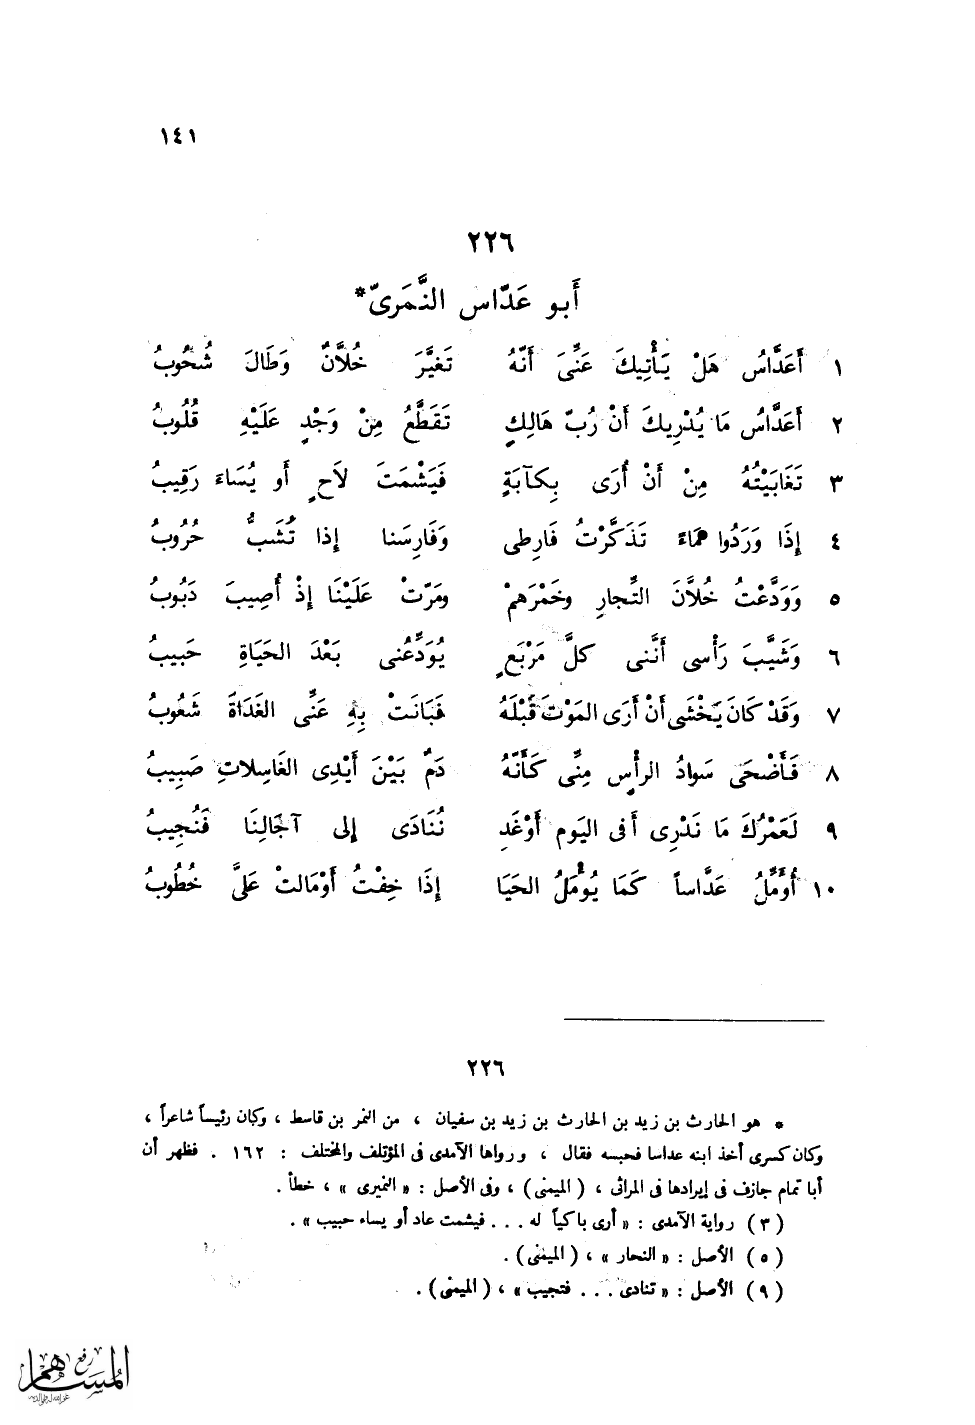 ١٤١
٢٢٦
أَبو عَدّاس النَّمَرىّ*
١ أَعَدَّاسُ هَلْ يَأْتِيكَ عَنِّىَ أَنَّهُ تَغَيَّرَ خُلَّانٌ وَطَالَ شُحُوبُ
٢ أَعَدَّاسُ مَا يُدْرِيكَ أَنْ رُبّ هَالِكٍ تَقَطَّعُ مِنْ وَجْدٍ عَلَيْهِ قُلُوبُ
٣ تَغَابَيْتُهُ مِنْ أَنْ أُرَى بِكآبَةٍ فَيَشْمَتَ لاَحٍ أَو يُسَاءَ رَقِيبُ
٤ إِذَا وَرَدُوا مَاءً تَذَكَّرْتُ فَارِطى وَفَارِسَنا إِذا تُشَبُّ حُرُوبُ
٥ وَوَدَّعْتُ خُلاَّنَ التِّجارِ وخَمْرَهمْ ومَرّتْ عَلَيْنَا إِذْ أُصِيبَ دَبُوبُ
٦ وَشَيَّبَ رَأْسى أَنَّنى كلَّ مَرْبَعٍ يُوَدِّعُنى بَعْدَ الحَيَاةِ حَبيبُ
٧ وَقَدْ كَانَ يَخْشَى أَنْ أَرَى المَوْتَ قَبْلَهُ فَبَانَتْ بِهِ عَنِّى الغَدَاةَ شَعُوبُ
٨ فَأَضْحَى سَوادُ الرأْسِ مِنِّى كَأَنَّهُ دَمٌ بَيْنَ أَيْدِى الغَاسِلاتِ صَبِيبُ
٩ لَعَمْرُكَ مَا نَدْرِى أَفى اليَوم أَوْغَدٍ نُنَادَى إِلى آجَالِنَا فَنُجِيبُ
١٠ أُوَمِّلُ عَدَّاساً كَمَا يُؤْمَلُ الحَيَا إِذَا خِفْتُ أَوْمَالتْ عَلَىَّ خطُوبُ
٢٢٦
* هو الحارث بن زيد بن الحارث بن زيد بن سفيان ، من النمر بن قاسط ، وكان رئيساً شاعراً ،
وكان كسرى أخذ ابنه عداسا فحبسه فقال ، ورواها الآمدى فى المؤتلف والمختلف : ١٦٢ . فظهر أن
أبا تمام جازف فى إيرادها فى المراثى ، (الميمنى) ، وفى الأصل : « النميرى » ، خطأ .
(٣) رواية الآمدى : « أرى باكياً له . . . فيشمت عاد أو يساء حبيب » .
(٥) الأصل : « النحار » ، (الميمنى) .
(٩) الأصل : « تنادى . . . فتجيب » ، (الميمنى) .
رفع
المساهم